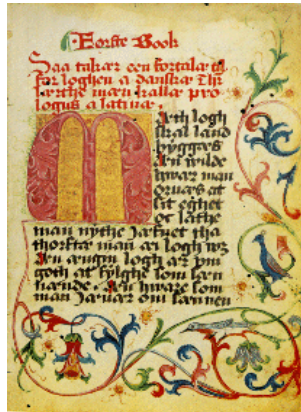 Eorste Book
Saa takær een fortalæ til
før loghen a danskæ Thr
særthe mæn kallæ pro
logus a latinæ.
Mæth logh
skal land
byggæs
Æn wilde
hwar man
orwæs at
sit eghet
oc lathe
man nythe jæfnet tha
thorftæ man æi logh wz
Æn ængin logh ær jæn
goth at fylghe som sæn
nænde. Æn hware som
man jæuær om sænnen